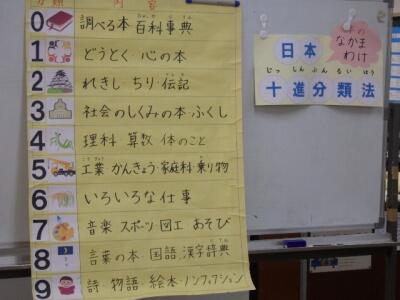 分類 内容
0 調べる本 百科事典
1 どうとく 心の本
2 れきし ちり 伝記
3 社会のしくみの本・ふくし
4 理科 算数 体のこと
5 工業 かんきょう・家庭科・乗り物
6 いろいろな仕事
7 音楽 スポーツ・図工 あそび
8 言葉の本・国語・漢字辞典
9 詩・物語・絵本・ノンフィクション
の
なかま
わけ
日本
じっしんぶんるいほう
十進分類法